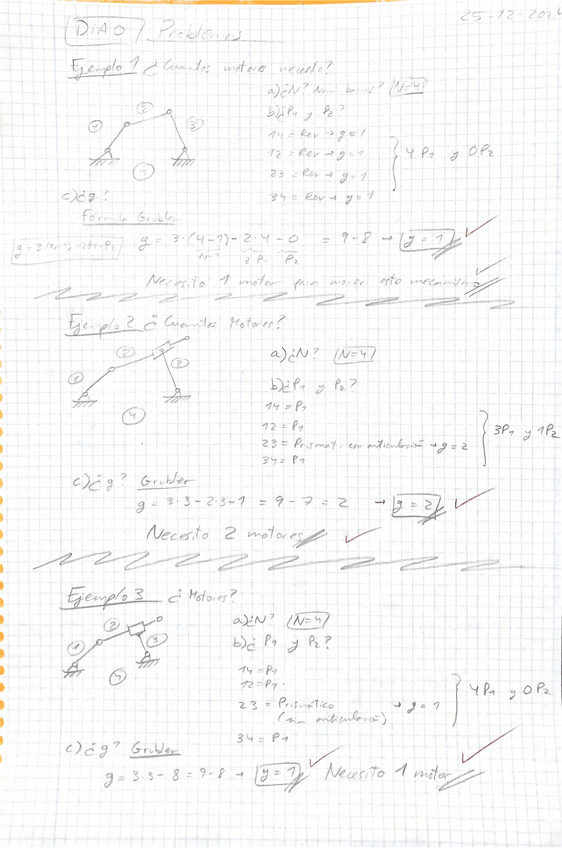 25-12-201
DiAO / Problemas
Ejemplo 1 ¿Cuantos motores necesito?
a) ¿N? Num barras? N=4
b) ¿P1 y P2?
14 = Rev → g=1
12 = Rev → g=1
23 = Rev → g=1
34 = Rev → g=1
4 P1 y 0 P2
1
2
3
4
c) ¿g?
Fórmula Grubler
g = 3·(4-1) - 2·4 - 0 = 9-8 → g=1
2P1 P2
Necesito 1 motor para mover este mecanismo
Ejemplo 2 ¿Cuantos Motores?
a) ¿N? N=4
b) ¿P1 y P2?
14 = P1
12 = P1
23 = Prismat. con articulación → g=2
34 = P1
3P1 y 1P2
1
2
3
4
c) ¿g? Grubler
g = 3·3-2·3-1 = 9-7 = 2 → g=2
Necesito 2 motores
Ejemplo 3 ¿Motores?
a) ¿N? N=4
b) ¿P1 y P2?
14 = P1
12 = P1
23 = Prismático → g=1
(sin articulación)
34 = P1
4P1 y 0P2
1
2
3
4
c) ¿g? Grubler
g = 3·3-8 = 9-8 → g=1 Necesito 1 motor